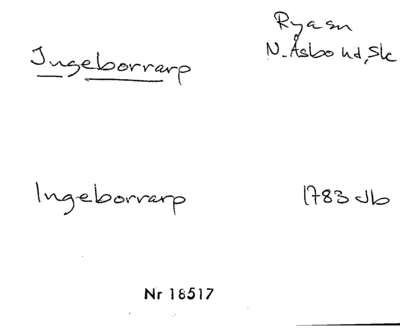 Ingeborrarp
Ryssn
N. Åsbo hd, Sk
Ingeborrarp
1783 Jb
Nr 18517